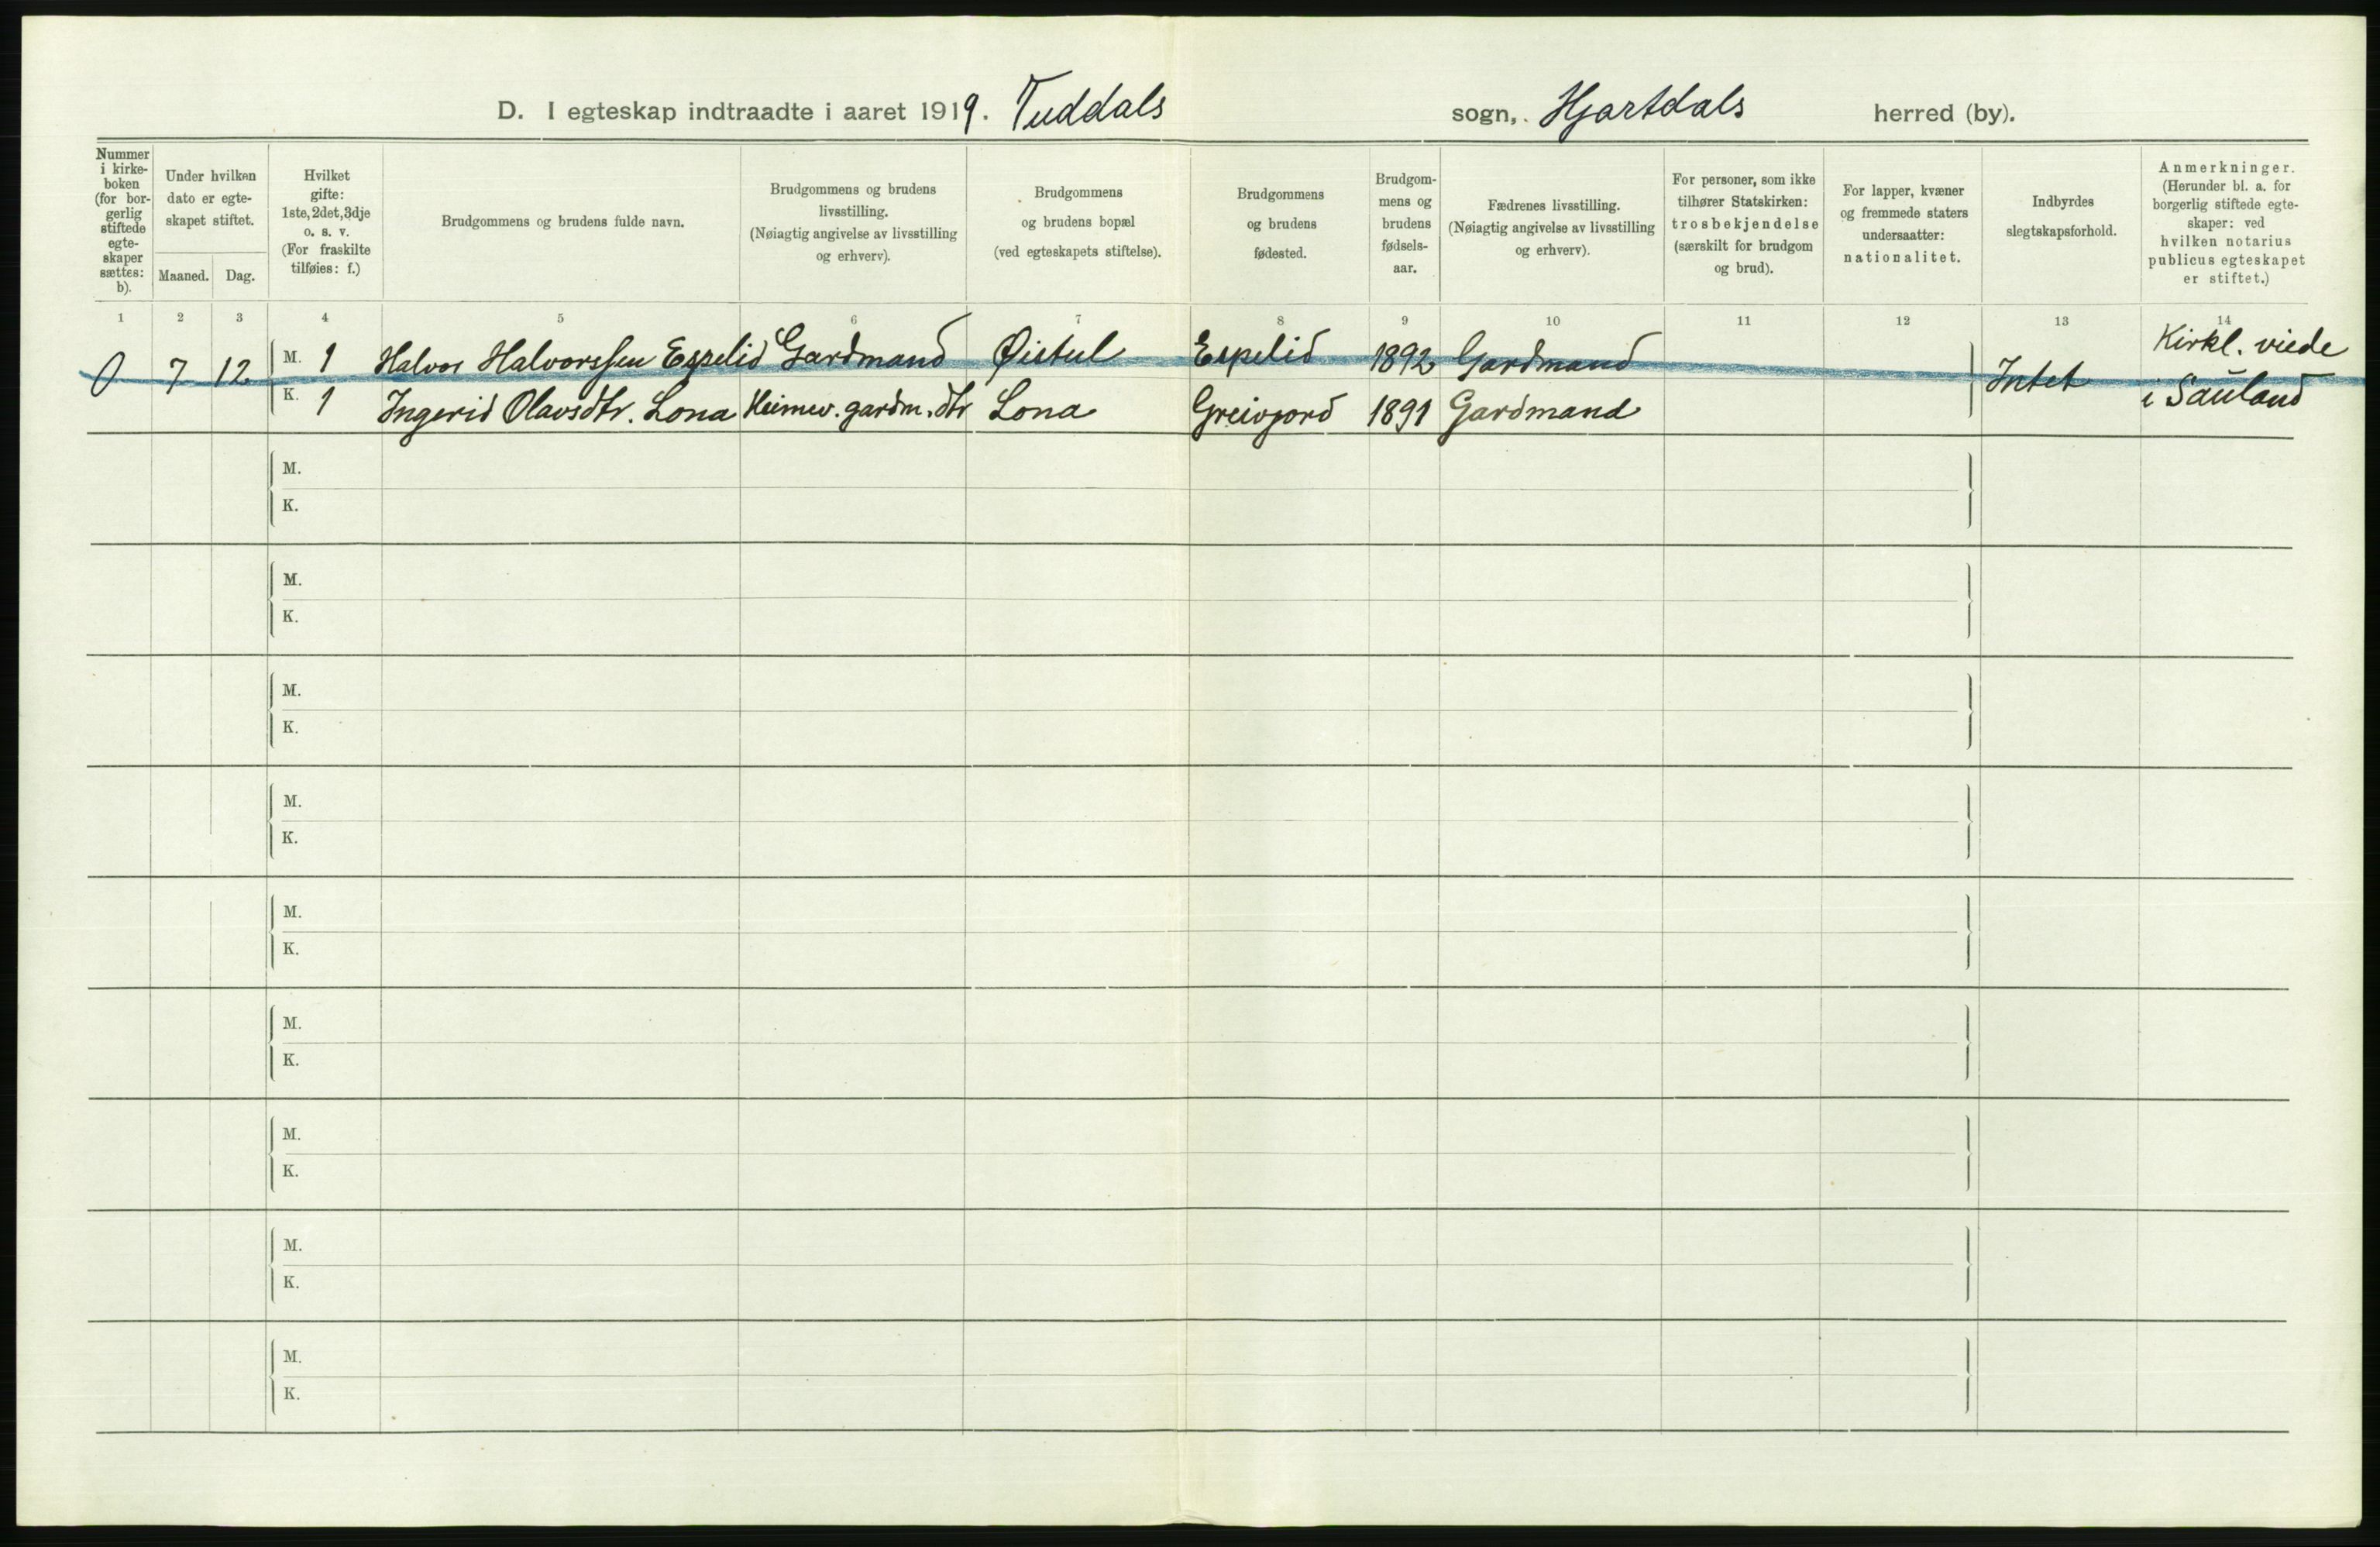 D. I egteskap indtraadte i aaret 1919. Tuddals sogn, Hjartdals herred (by).
Nummer i kirkeboken (for borgerlig stiftede egteskaper sættes: b).
Under hvilken dato er egteskapet stiftet.
Maaned. Dag.
Hvilket gifte: 1ste, 2det, 3dje o. s. v. (For fraskilte tilføies: f.)
Brudgommens og brudens fulde navn.
Brudgommens og brudens livsstilling. (Nøiagtig angivelse av livsstilling og erhverv).
Brudgommens og brudens bopæl (ved egteskapets stiftelse).
Brudgommens og brudens fødested.
Brudgommens og brudens fødselsaar.
Fædrenes livsstilling. (Nøiagtig angivelse av livsstilling og erhverv).
For personer, som ikke tilhører Statskirken: trosbekjendelse (særskilt for brudgom og brud).
For lapper, kvæner og fremmede staters undersaatter: nationalitet.
Indbyrdes slegtskapsforhold.
Anmerkninger. (Herunder bl. a. for borgerlig stiftede egteskaper: ved hvilken notarius publicus egteskapet er stiftet.)
1 2 3 4 5 6 7 8 9 10 11 12 13 14
0 7 12 M. 1 Halvor Halvorssen Espelid Gardmand Øistul Espelid 1892 Gardmand Intet Kirkl. viede
K. 1 Ingerid Olavsdtr. Lona Heimev. gardm. dtr Lona Greivjord 1891 Gardmand i Sauland
M.
K.
M.
K.
M.
K.
M.
K.
M.
K.
M.
K.
M.
K.
M.
K.
M.
K.